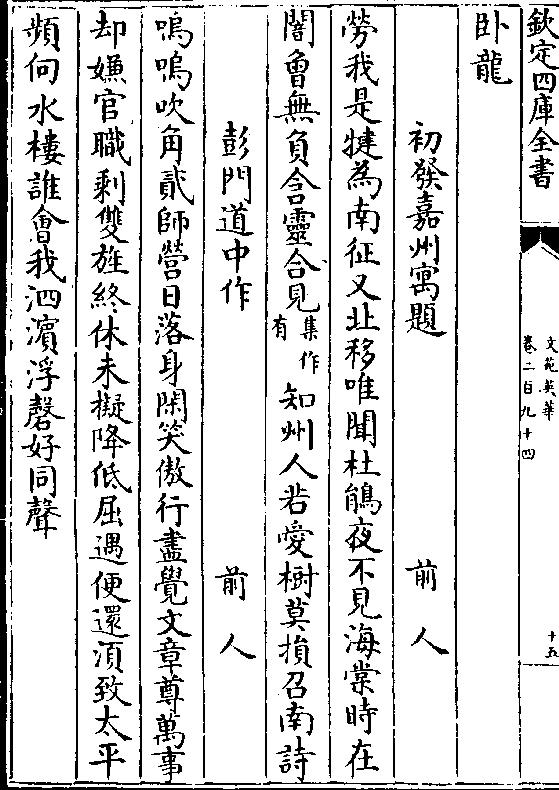 欽定四庫全書
文苑英華
卷二百九十四
十五
卧龍
初發嘉州寓題
前人
勞我是犍為南征又北移唯聞杜鵑夜不見海棠時在
闇會無負含靈合見集作有知州人若愛樹莫損召南詩
彭門道中作
前人
嗚嗚吹角貳師營日落身閑笑傲行盡覺文章尊萬事
却嫌官職剩雙旌終休未擬降低屈遇便還須致太平
頻向水樓誰會我泗濵浮磬好同聲